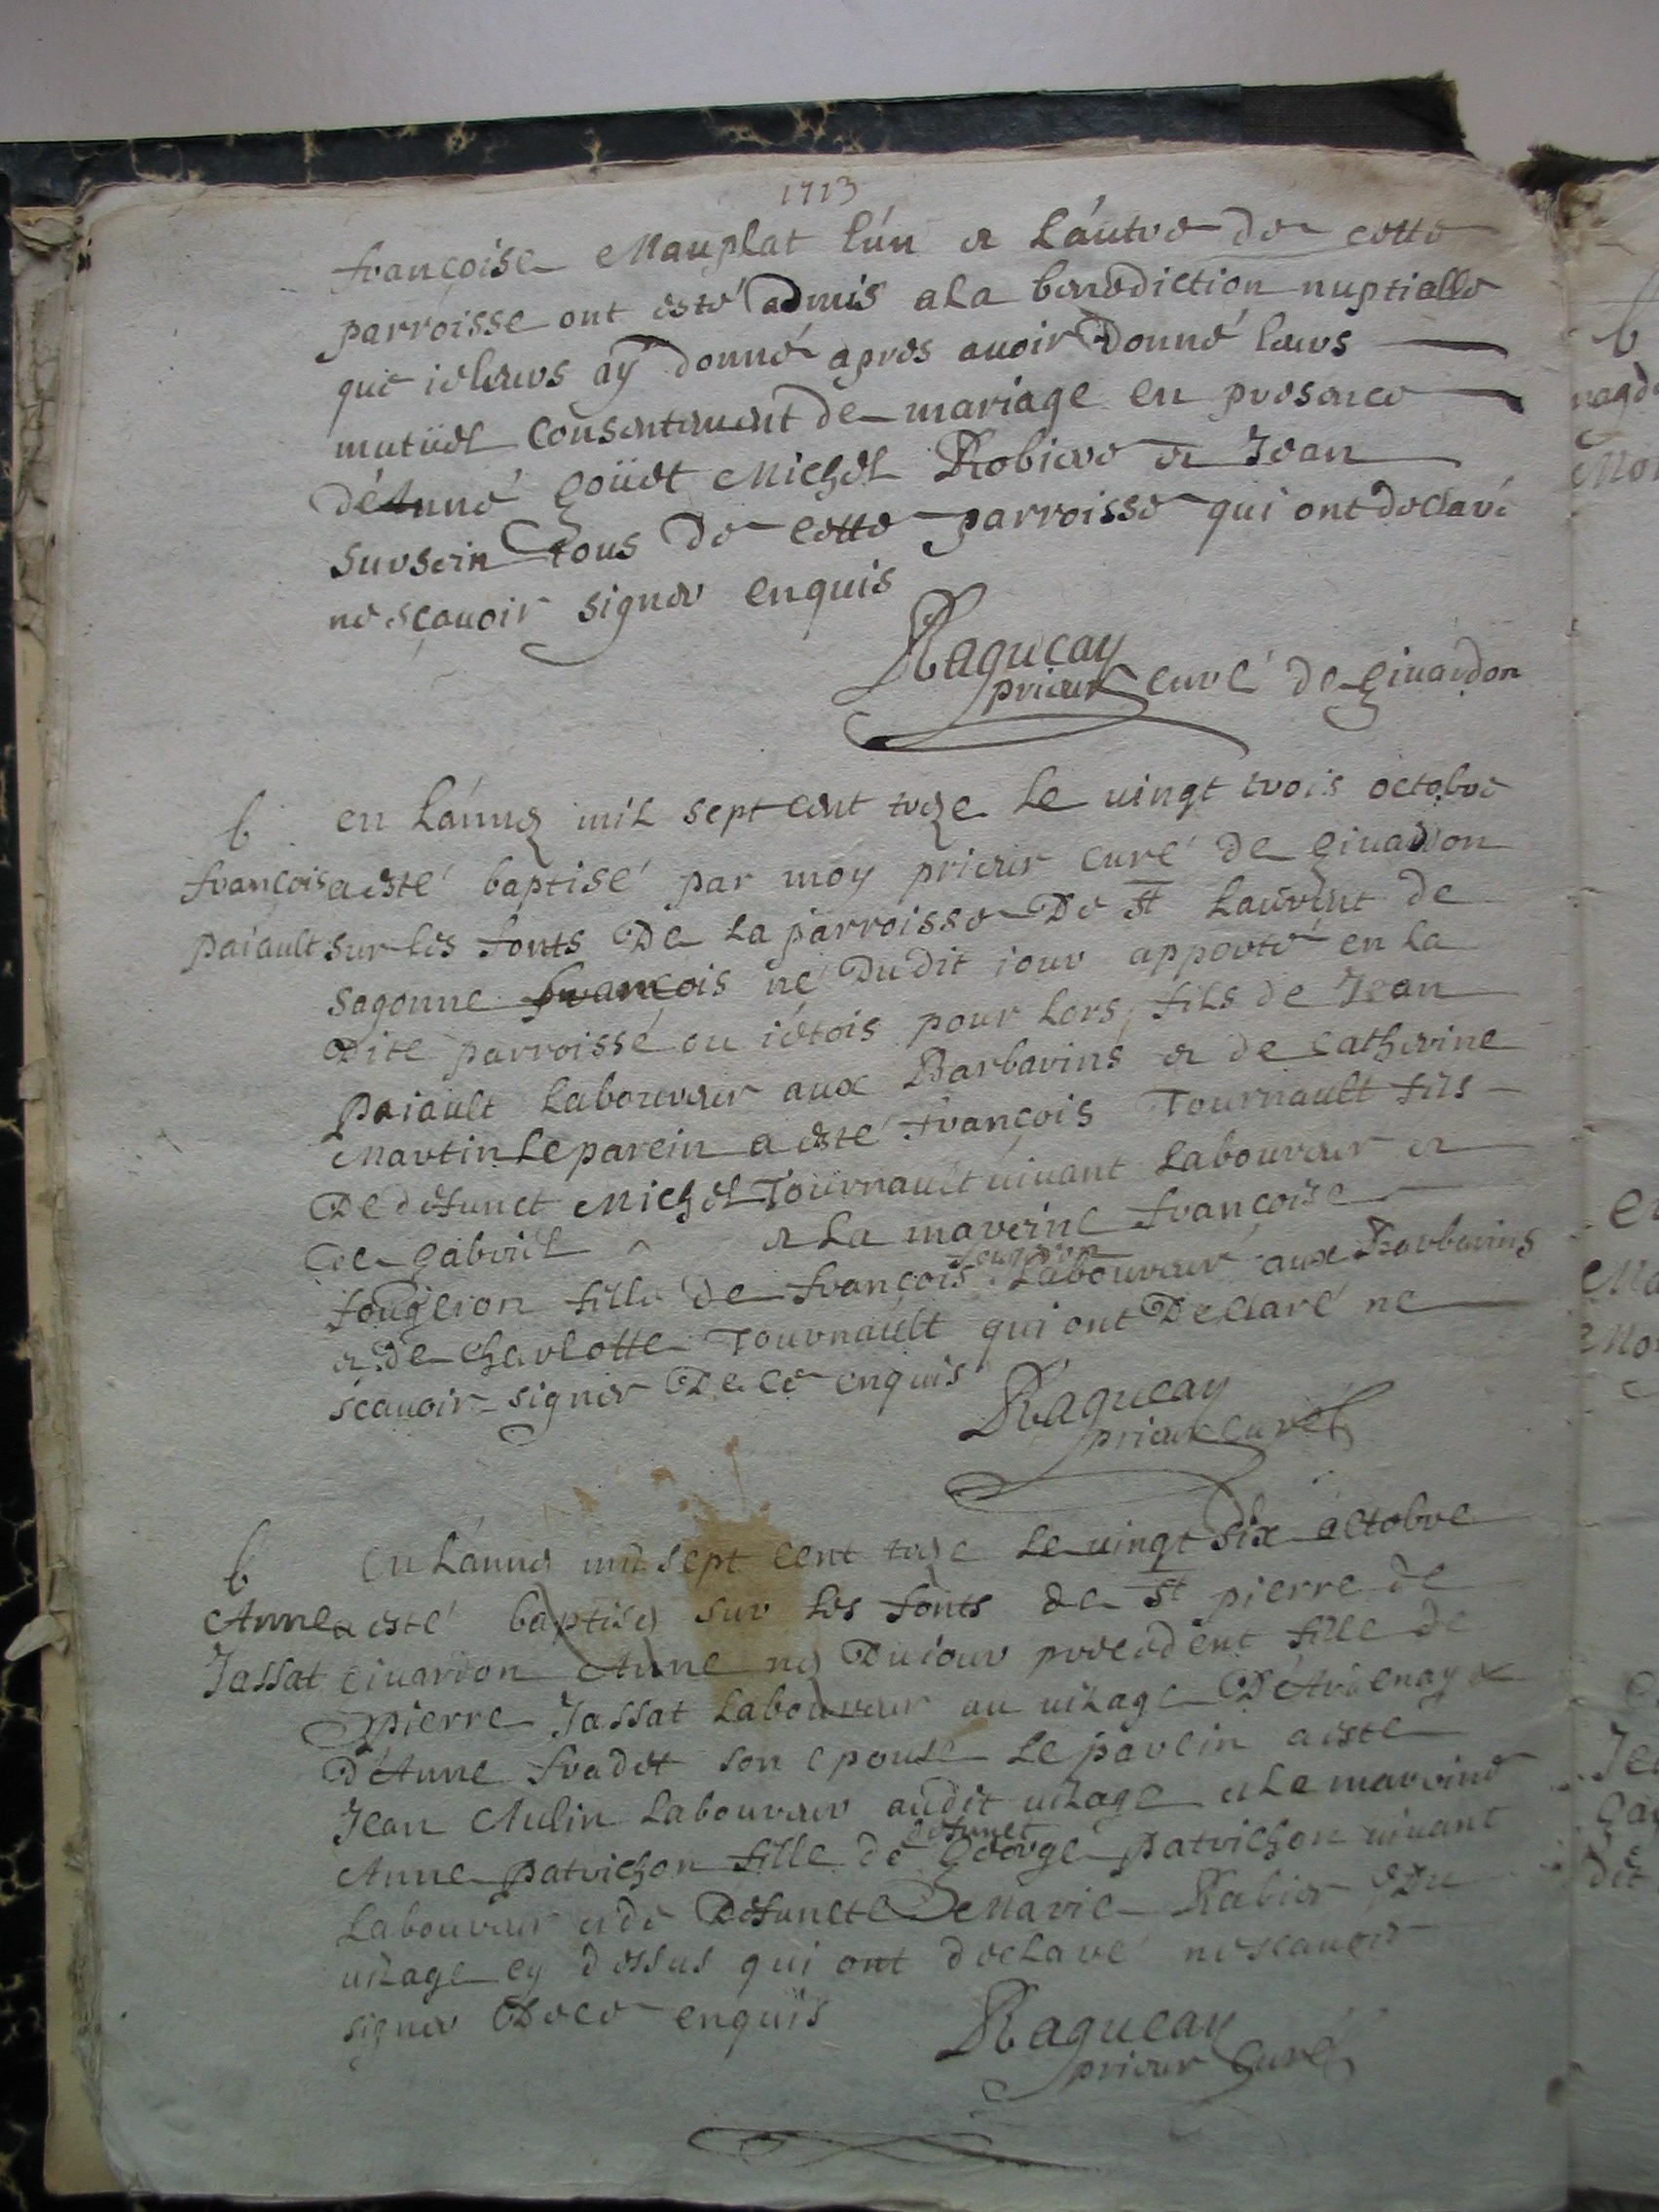 1713
françoise Mauplat lún et Láutre de cette
parroisse ont esté admis ala benediction nuptialle
que ieleurs aÿ donné apres auoir donné leurs
mutüel consentement de mariage en presence
déAnné goüet Michel Robiere et Jean
Sursein tous de cette parroisse qui ont declaré
ne scauoir signer enquis
Ragueay
prieur curé de giuardon
b en Lánnee mil sept cent treze Le uingt trois octobre
françois a esté baptisé par moy prieur curé de giuardon
paiault sur les fonts De La parroisse De St Laurent de
Sagonne françois né Dudit iour apporté en La
Dite parroisse ou iétois pour Lors, fils de Jean
paiault Laboureur aux Barbarins et de catherine
Martin Le parein a esté françois Tournault fils
De defunct Michel Tournault uiuant Laboureur et
De gabriel ^ et La mareine françoise
fougeron fille de françois fougeron Laboureur aux Barbarins
et De charlotte Tournault qui ont Declaré ne
scauoir signer De ce enquis
Ragueay
prieur curé
b en Lánnee mil sept cent treze Le uingt six octobre
Anne a esté baptisee sur les fonts de St pierre de
Jassat giuardon Anne nee Du iour precedent fille de
pierre Jassat Laboureur au uilage et
D'Anne fradet son epouse Le parein a esté
Jean Aulin Laboureur audit uilage et La mareine
Anne patrichon fille de defunct george patrichon uiuant
Laboureur et de Defuncte Marie Rabier Du
uilage cy dessus qui ont declaré ne scauoir
signer De ce enquis
Ragueay
prieur curé